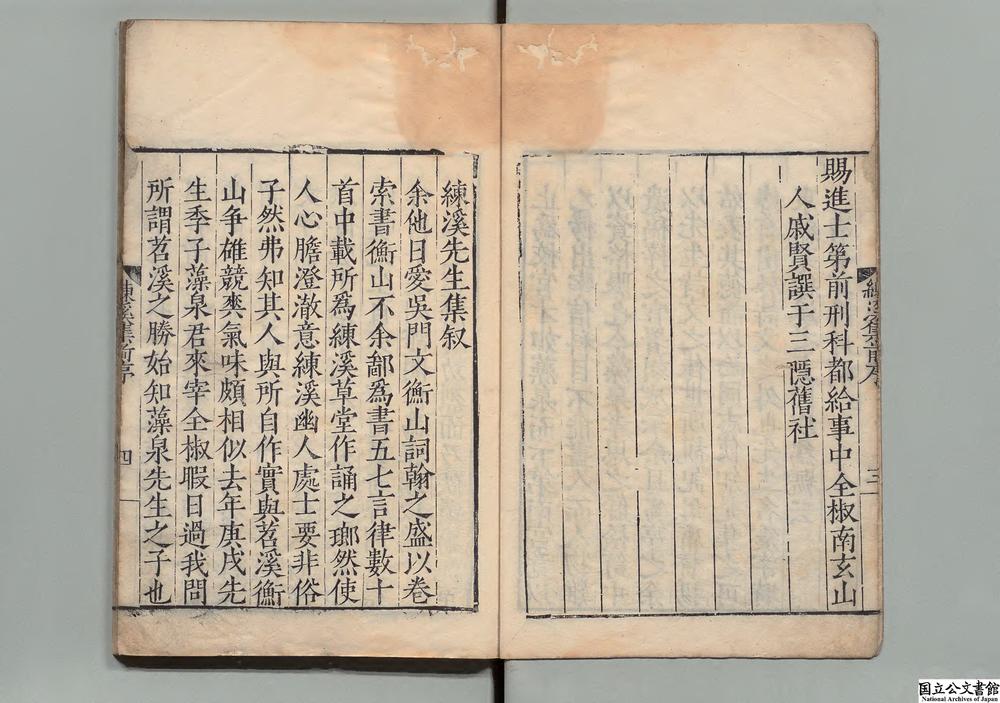 賜進士第前刑科都給事中全椒南玄山
人戚賢譔于三隱舊社
三
練溪先生集叙
余他日愛吳門文衡山詞翰之盛以卷
索書衡山不余鄙爲書五七言律數十
首中載所爲練溪草堂作誦之瑯然使
人心膽澄澈意練溪幽人處士要非俗
子然弗知其人與所自作實與苕溪衡
山争雄競爽氣味頗相似去年庚戌先
生季子藻泉君來宰全椒暇日過我問
所謂苕溪之勝始知藻泉先生之子也
練溪集前序
四
国立公文書館
National Archives of Japan